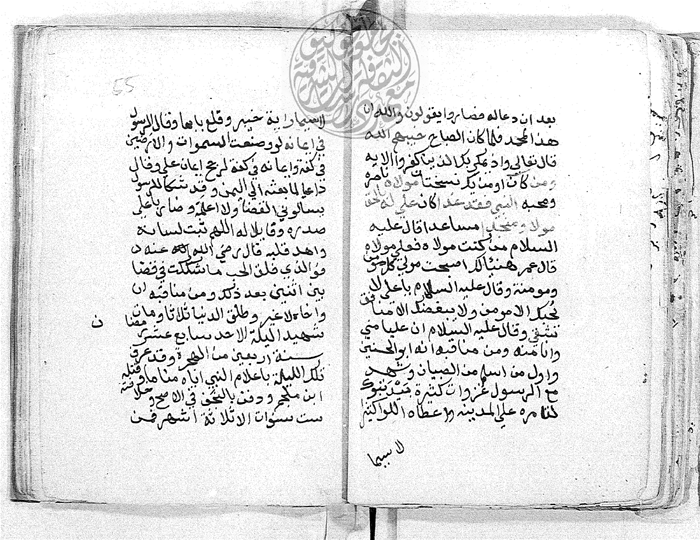 بعد ان دعاله فصاروا يقولون والله ان
هذا لمجد فلما كان الصباح خيبهم الله
قال تعالي واذ يمكر بك الذين كفروا الاية
ومن كان اومن يكن نسختان مولاه ناصره
ومحبه النبي فقد غدا كان علي له
مولا ومنجدا مساعدا قال عليه
السلام من كنت مولاه فعلي مولاه
قال عمر هنيئا لك اصبحت مولي كل مومن
ومومنة وقال عليه السلام يا علي لا
يحبك الا مومن ولا يبغضك الا منافق
وقال عليه السلام ان عليا مني
وانا منه ومن مناقبه انه ابو الحسنين
واول من اسلم من الصبيان وشهد
مع الرسول غزوات كثيرة غير تبوك
علي المدينة واعطاه اللوا كثيرا
لا سيما
65
لا سيما راية خيبر و قلع بابها وقال الرسول
في ايمانه لو وضعت السموات والارضين
في كفة وايمانه في كفة لرجح ايمان علي وقال
داعيا لما بعثه الي اليمن وقد شكا للرسول
يسالوني القضا ولا اعلمه وضاربا علي
صدره وقايلا له اللهم ثبت لسانه
واهد قلبه قال رضي الله عنه
فوالذي فلق الحب ما شككت في قضا
بين اثنين بعد ذلك ومن مناقبه ان
واخاه لا غير وطلق الدنيا ثلاثا ومات
شهيدا ليلة الاحد سابع عشر
سنة اربعين من الهجرة وقد عرف
تلك الليلة باعلام النبي اياه مناما وقتله
ابن ملجم ودفن بالنجف في الاصح وخلافته
ست سنوات الا ثلاثة اشهر فمن